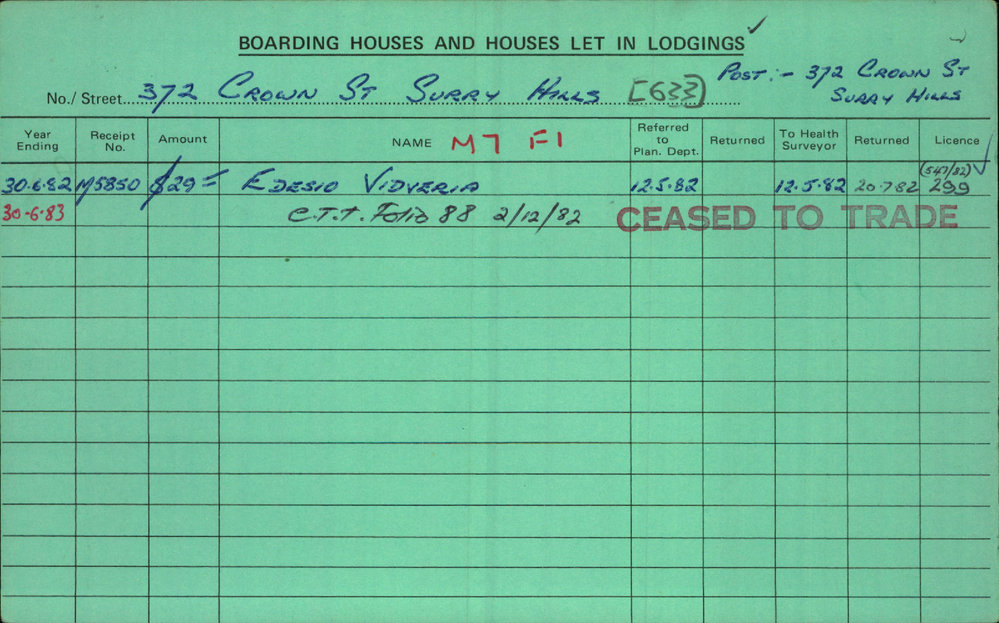 BOARDING HOUSES AND HOUSES LET IN LODGINGS
Post:- 372 Crown St
Surry Hills
No./Street 372 Crown St Surry Hills [633]
Year Ending Receipt No. Amount NAME M7 F1 Referred to Plan. Dept. Returned To Health Surveyor Returned Licence
30.6.82 M5850 $29= Edesio Vidveria 12.5.82 12.5.82 20.7.82 (547/82) 299
30.6.83 C.T.T. Folio 88 2/12/82 CEASED TO TRADE